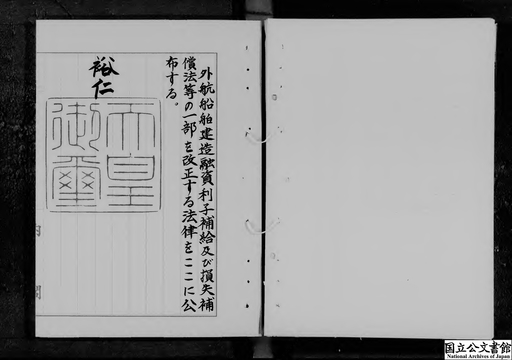 外航船舶建造融資利子補給及び損失補
償法等の一部を改正する法律をここに公
布する。
裕仁
天皇
御璽
国立公文書館
National Archives of Japan